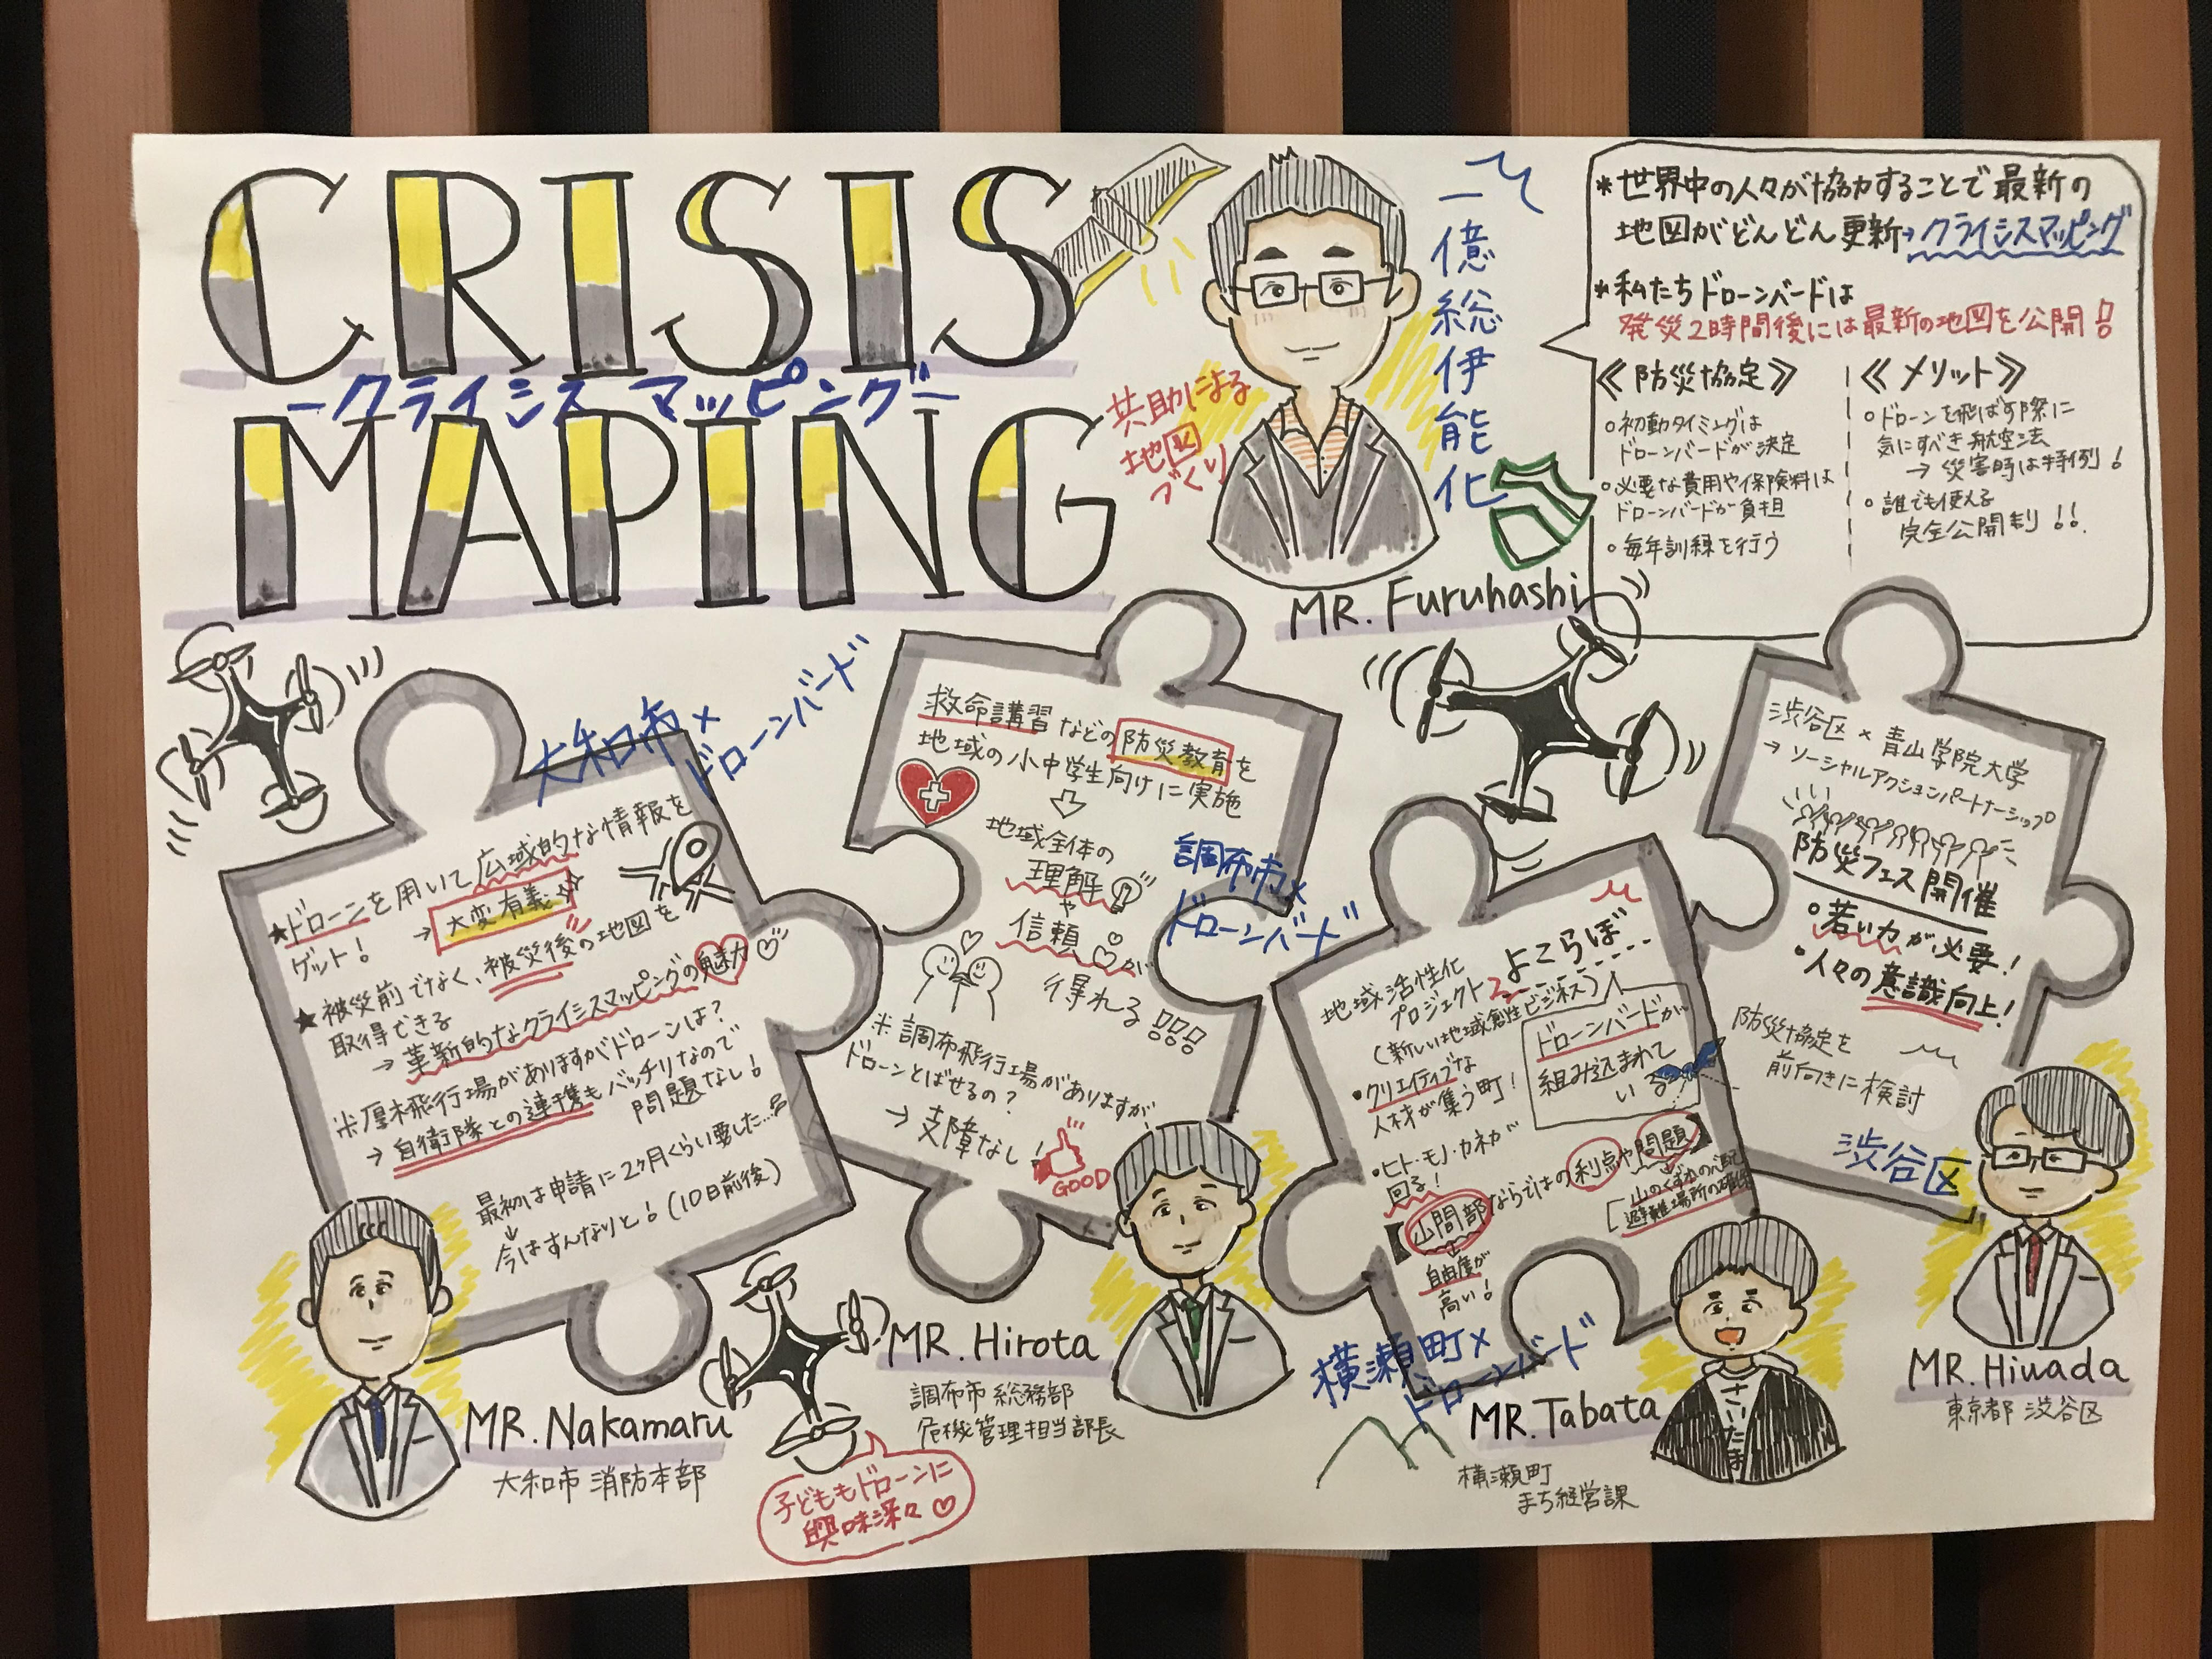 CRISIS
-クライシスマッピング-
MAPING
共助による
地図
づくり
一億総伊能化
MR. Furuhashi
*世界中の人々が協力することで最新の
地図がどんどん更新→クライシスマッピング
*私たちドローンバードは
発災2時間後には最新の地図を公開!!
《防災協定》
○初動タイミングは
ドローンバードが決定
○必要な費用や保険料は
ドローンバードが負担
○毎年訓練を行う
《メリット》
○ドローンを飛ばす際に
気にすべき航空法
→災害時は特例!
○誰でも使える
完全公開制!!
大和市×
ドローンバード
★ドローンを用いて広域的な情報を
ゲット! →大変有義
★被災前でなく、被災後の地図を
取得できる
→革新的なクライシスマッピングの魅力
※厚木飛行場がありますがドローンは?
→自衛隊との連携もバッチリなので
問題なし!
最初は申請に2ヶ月くらい要した…
↓
今はすんなりと!(10日前後)
MR. Nakamaru
大和市 消防本部
救命講習などの防災教育を
地域の小中学生向けに実施
地域全体の
理解
や
信頼が
得れる!!!
※調布飛行場がありますが
ドローンとばせるの?
→支障なし!
GOOD
調布市×
ドローンバード
MR. Hirota
調布市 総務部
危機管理担当部長
子どももドローンに
興味深々♡
地域活性化
プロジェクト2 よこらぼ…
(新しい地域創生ビジネス)
・クリエイティブな
人材が集う町!
ドローンバードが
組み込まれて
いる
・ヒト・モノ・カネが
回る!
山間部ならではの利点や問題
自由度が
高い!
山のくずれの心配
避難場所の確保
横瀬町×
ドローンバード
MR. Tabata
横瀬町
まち経営課
さいたま
渋谷区×青山学院大学
→ソーシャルアクションパートナーシップ
防災フェス開催
・若い力が必要!
・人々の意識向上!
防災協定を
前向きに検討
渋谷区
MR. Hiwada
東京都 渋谷区